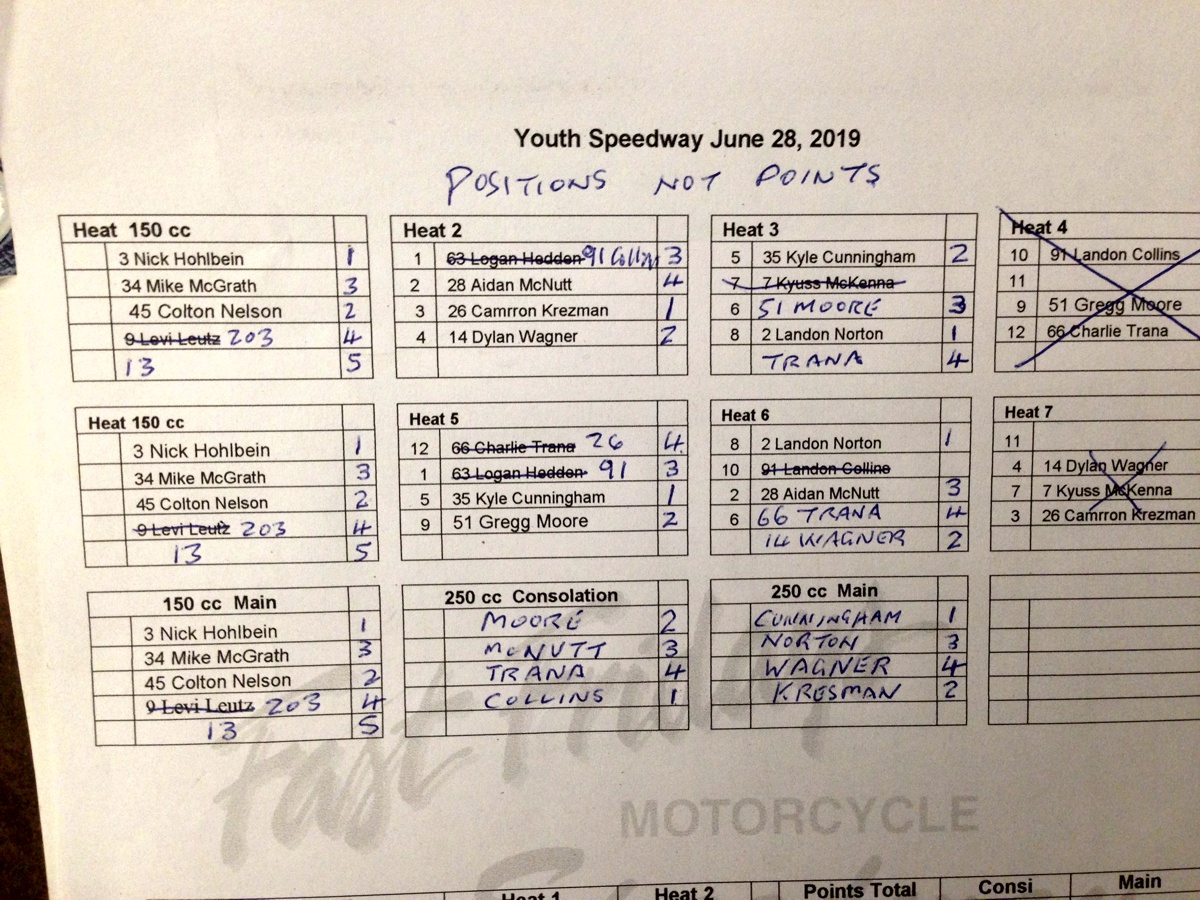 Youth Speedway June 28, 2019
POSITIONS NOT POINTS
Heat 150 cc
3 Nick Hohlbein 1
34 Mike McGrath 3
45 Colton Nelson 2
9 Levi Leutz 203 4
13 5
Heat 2
1 63 Logan Hedden 91 3
2 28 Aidan McNutt 4
3 26 Camrron Krezman 1
4 14 Dylan Wagner 2
Heat 3
5 35 Kyle Cunningham 2
7 7 Kyuss McKenna
6 51 MOORE 3
8 2 Landon Norton 1
TRANA 4
Heat 4
10 91 Landon Collins
11
9 51 Gregg Moore
12 66 Charlie Trana
Heat 150 cc
3 Nick Hohlbein 1
34 Mike McGrath 3
45 Colton Nelson 2
9 Levi Leutz 203 4
13 5
Heat 5
12 66 Charlie Trana 26 4
1 63 Logan Hedden 91 3
5 35 Kyle Cunningham 1
9 51 Gregg Moore 2
Heat 6
8 2 Landon Norton 1
10 91 Landon Colline
2 28 Aidan McNutt 3
6 66 TRANA 4
14 WAGNER 2
Heat 7
11
4 14 Dylan Wagner
7 7 Kyuss McKenna
3 26 Camrron Krezman
150 cc Main
3 Nick Hohlbein 1
34 Mike McGrath 3
45 Colton Nelson 2
9 Levi Leutz 203 4
13 5
250 cc Consolation
MOORE 2
McNUTT 3
TRANA 4
COLLINS 1
250 cc Main
CUNNINGHAM 1
NORTON 3
WAGNER 4
KRESMAN 2
Fast Friday
MOTORCYCLE
Heat 1 Heat 2 Points Total Consi Main